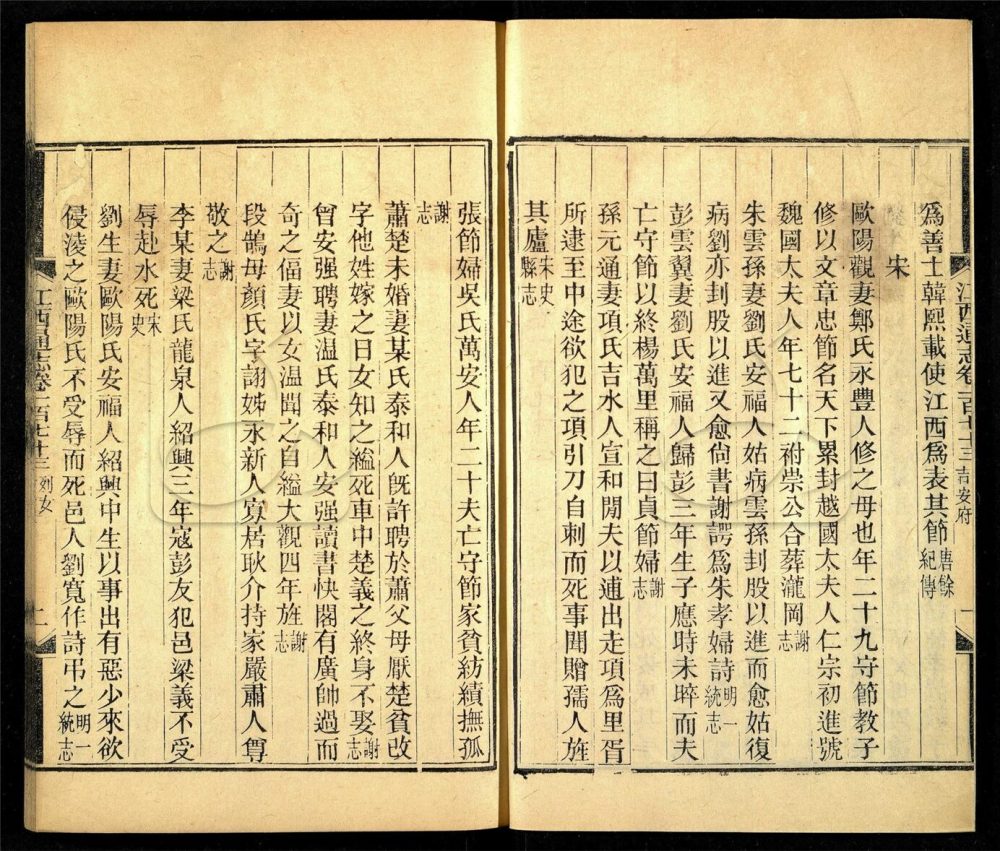 江西通志卷一百七十三 吉安府
爲善士韓熙載使江西爲表其節唐餘紀傳
宋
歐陽觀妻鄭氏永豐人修之母也年二十九守節教子
修以文章忠節名天下累封越國太夫人仁宗初進號
魏國太夫人年七十二祔崇公合葬瀧岡謝志
朱雲孫妻劉氏安福人姑病雲孫刲股以進而愈姑復
病劉亦刲股以進又愈尙書謝諤爲朱孝婦詩明一統志
彭雲翼妻劉氏安福人歸彭三年生子應時未晬而夫
亡守節以終楊萬里稱之曰貞節婦謝志
孫元通妻項氏吉水人宣和閒夫以逋出走項爲里胥
所逮至中途欲犯之項引刀自刺而死事聞贈孺人旌
其廬宋史縣志
張節婦吳氏萬安人年二十夫亡守節家貧紡績撫孤
謝志
蕭楚未婚妻某氏泰和人旣許聘於蕭父母厭楚貧改
字他姓嫁之日女知之縊死車中楚義之終身不娶謝志
曾安强聘妻温氏泰和人安强讀書快閣有廣帥過而
奇之偪妻以女温聞之自縊大觀四年旌謝志
段鵠母顏氏字詡姊永新人寡居耿介持家嚴肅人尊
敬之謝志
李某妻梁氏龍泉人紹興三年寇彭友犯邑梁義不受
辱赴水死宋史
劉生妻歐陽氏安福人紹興中生以事出有惡少來欲
侵淩之歐陽氏不受辱而死邑人劉寬作詩弔之明一統志
江西通志卷一百七十三 列女 二